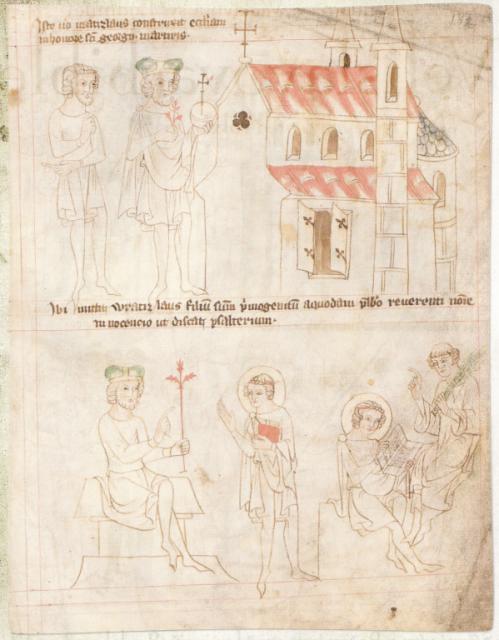 Iste uo uratizlaus construxit eccliam
in honore sci georgii martiris.
Ubi mittit wratizlaus filiu suu pmogenitum aquodam pbro reuerenti noie
innocencio ut discat psalterium.